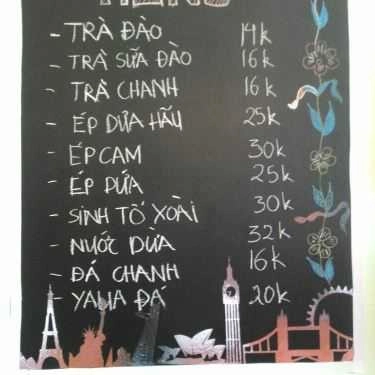 MENU
- TRÀ ĐÀO 14k
- TRÀ SỮA ĐÀO 16k
- TRÀ CHANH 16k
- ÉP DƯA HẤU 25k
- ÉP CAM 30k
- ÉP DỨA 25k
- SINH TỐ XOÀI 30k
- NƯỚC DỪA 32k
- ĐÁ CHANH 16k
- YAUA ĐÁ 20k